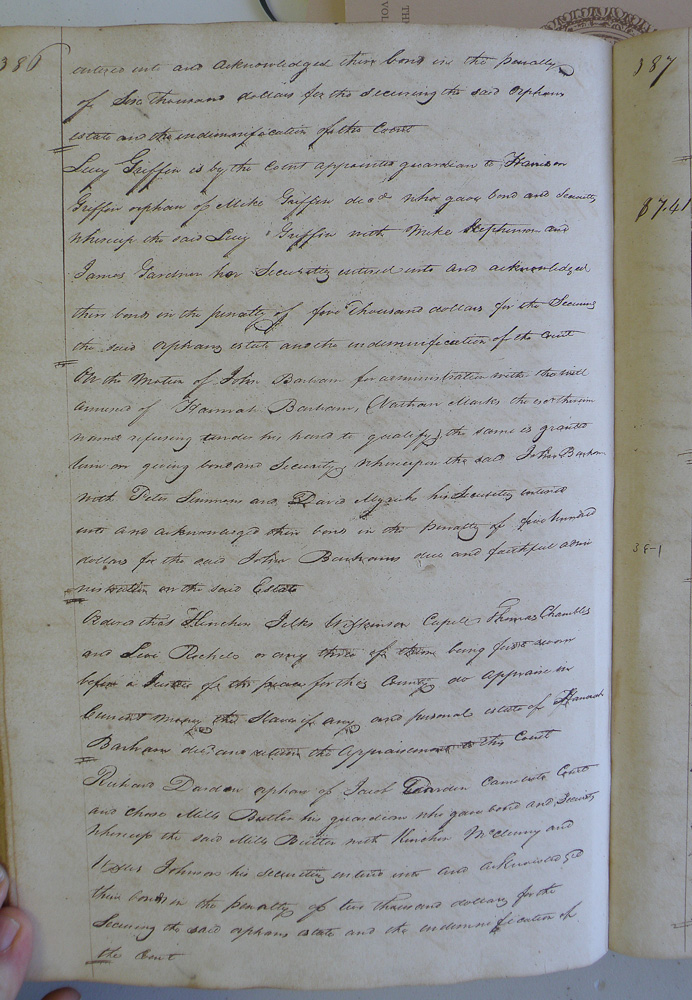 386
entered into and acknowledged their bond in the penalty
of Six thousand dollars for the securing the said orphans
estate and the indemnification of the Court
Lucy Griffin is by the Court appointed guardian to Harrison
Griffin orphan of Mike Griffin decd who gave bond and Security
whereup the said Lucy Griffin with Mike Stephenson and
James Gardner her Securities entered into and acknowledged
their bond in the penalty of five Thousand dollars for the Securing
the said orphans estate and the indemnification of the Court
On the Motion of John Barham for administration with the will
annexed of Hannah Barham, (Nathan Marks the exor therein
named refusing under his hand to qualify) the same is granted
him on giving bond and Security, whereupon the said John Barham
with Peter Simmons and David his Securities entered
into and acknowledged their bond in the Penalty of five hundred
dollars for the said John Barhams due and faithful admi
nistration on the said Estate
Ordered that Hinchen Jelks Wilkinson Capell Thomas Chambles
and Levi Rochelle or any three of them being first sworn
before a Justice of the peace for this County do appraise in
Current money the Slaves if any and personal estate of Hannah
Barham decd and return the Appraisement to this Court
Richard Darden orphan of Jacob Darden Came into Court
and chose Mills Butler his guardian who gave bond and Security
whereup the said Mills Butler with Kinchen McClenny and
Johnson his securities entered into and acknowledged
their bond in the penalty of two thousand dollars for the
Securing the said orphans estate and the indemnification of
the Court
387
3E-1